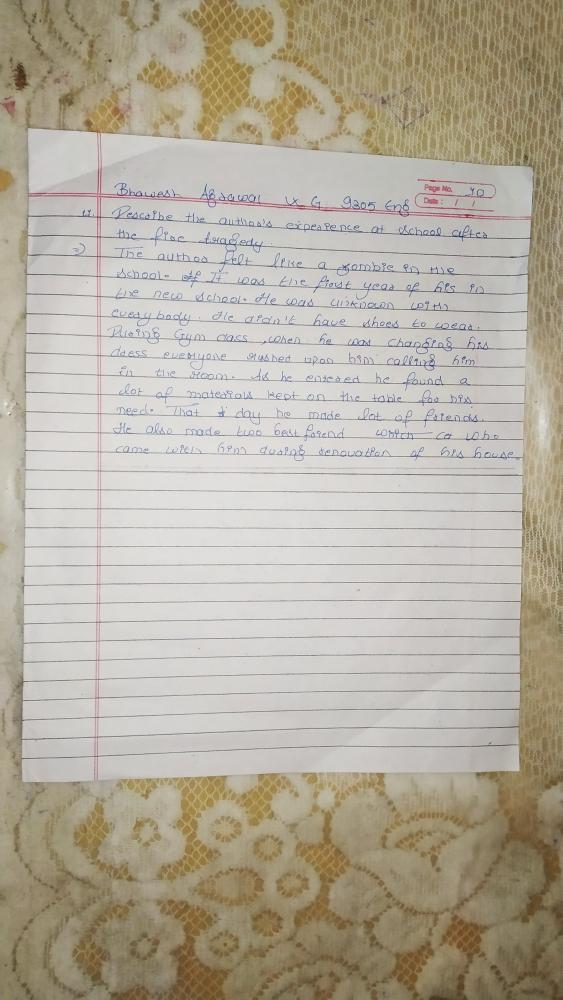 Bhawesh Agrawal IX G 9305 Eng
Page No. 10
Date: / /
Describe the author's experience at school after
the fire tragedy.
=> The author felt like a zombie in the
school. It was the first year of his in
the new school. He was unknown with
everybody. He didn't have shoes to wear.
During Gym class, when he was changing his
dress everyone rushed upon him calling him
in the room. As he entered he found a
lot of materials kept on the table for his
need. That day he made lot of friends.
He also made two best friend who
came with him during renovation of his house.